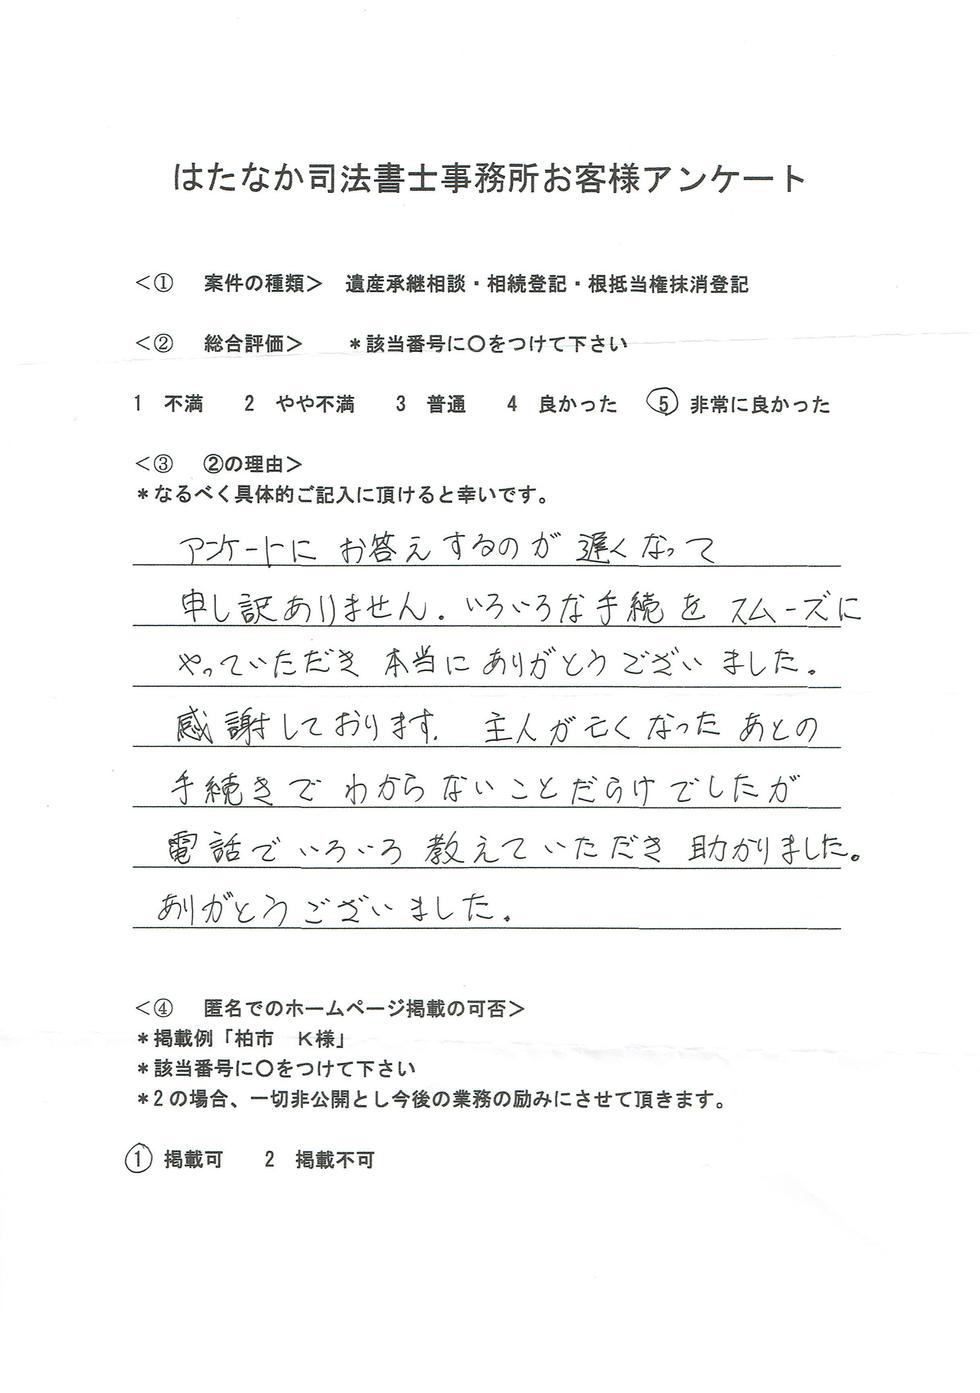 はたなか司法書士事務所お客様アンケート
＜①　案件の種類＞　遺産承継相談・相続登記・根抵当権抹消登記
＜②　総合評価＞　　＊該当番号に〇をつけて下さい
1　不満　　2　やや不満　　3　普通　　4　良かった　　⑤　非常に良かった
＜③　②の理由＞
＊なるべく具体的ご記入に頂けると幸いです。
アンケートに お答えするのが 遅くなって
申し訳ありません。いろいろな手続を スムーズに
やっていただき 本当に ありがとうございました。
感謝しております。 主人が亡くなった あとの
手続きで わからないことだらけでしたが
電話で いろいろ 教えて いただき 助かりました。
ありがとうございました。
＜④　匿名でのホームページ掲載の可否＞
＊掲載例「柏市　K様」
＊該当番号に〇をつけて下さい
＊2の場合、一切非公開とし今後の業務の励みにさせて頂きます。
①　掲載可　　2　掲載不可